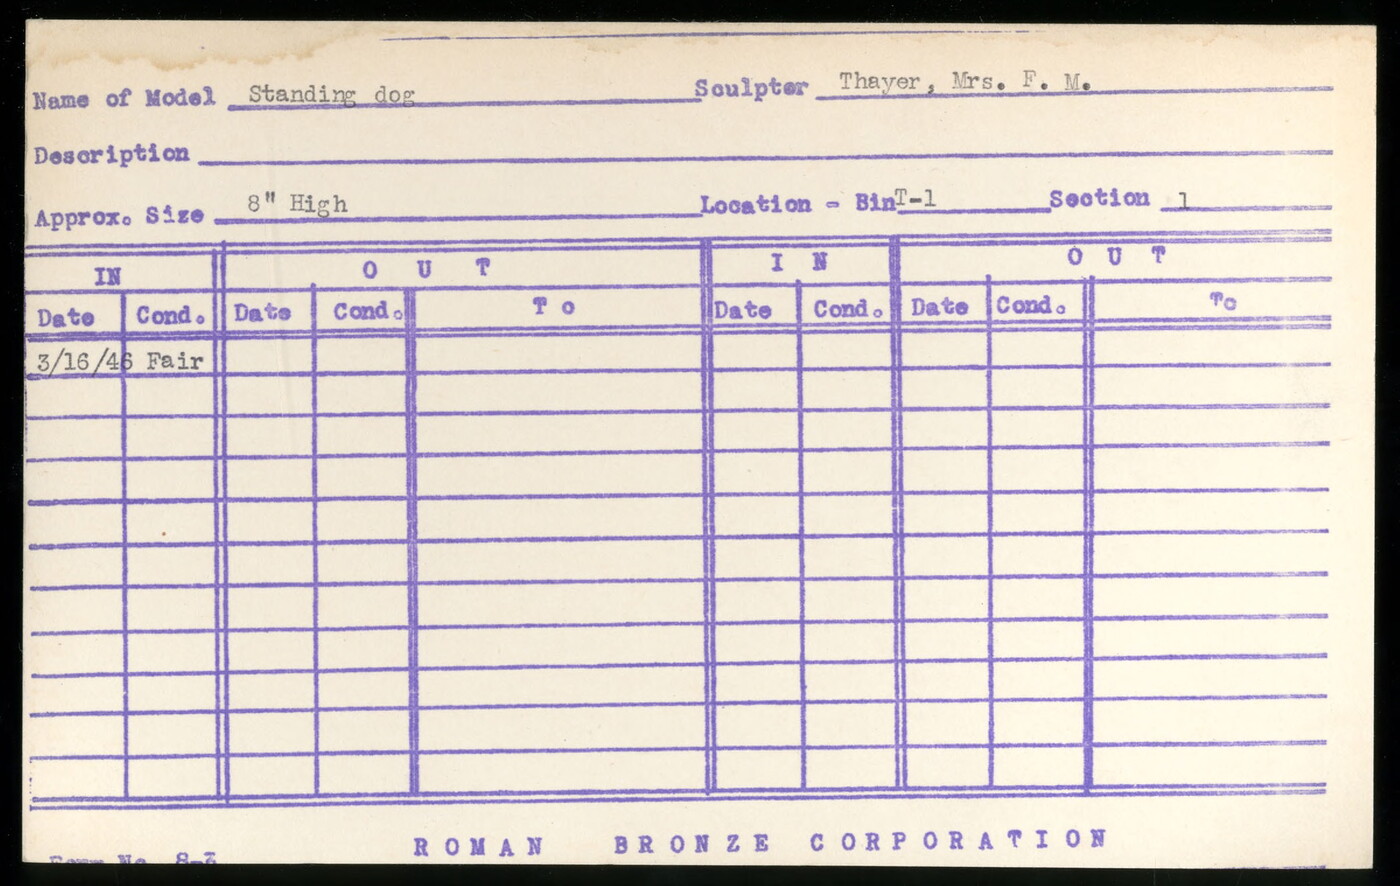 Name of Model Standing dog Sculptor Thayer, Mrs. F. M.
Description
Approx. Size 8" High Location - Bin T-1 Section 1
IN O U T I N O U T
Date Cond. Date Cond. T o Date Cond. Date Cond. To
3/16/46 Fair
Form No. 8-3
ROMAN BRONZE CORPORATION